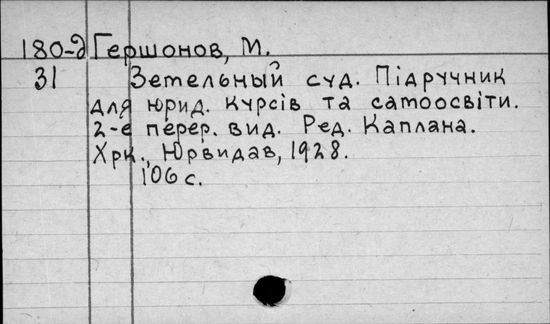 180-д Гершонов, М.
31 Земельный суд. Підручник
для юрид. курсів та самоосвіти.
2-е перер. вид. Ред. Каплана.
Хрк., Юрвидав, 1928.
106 с.